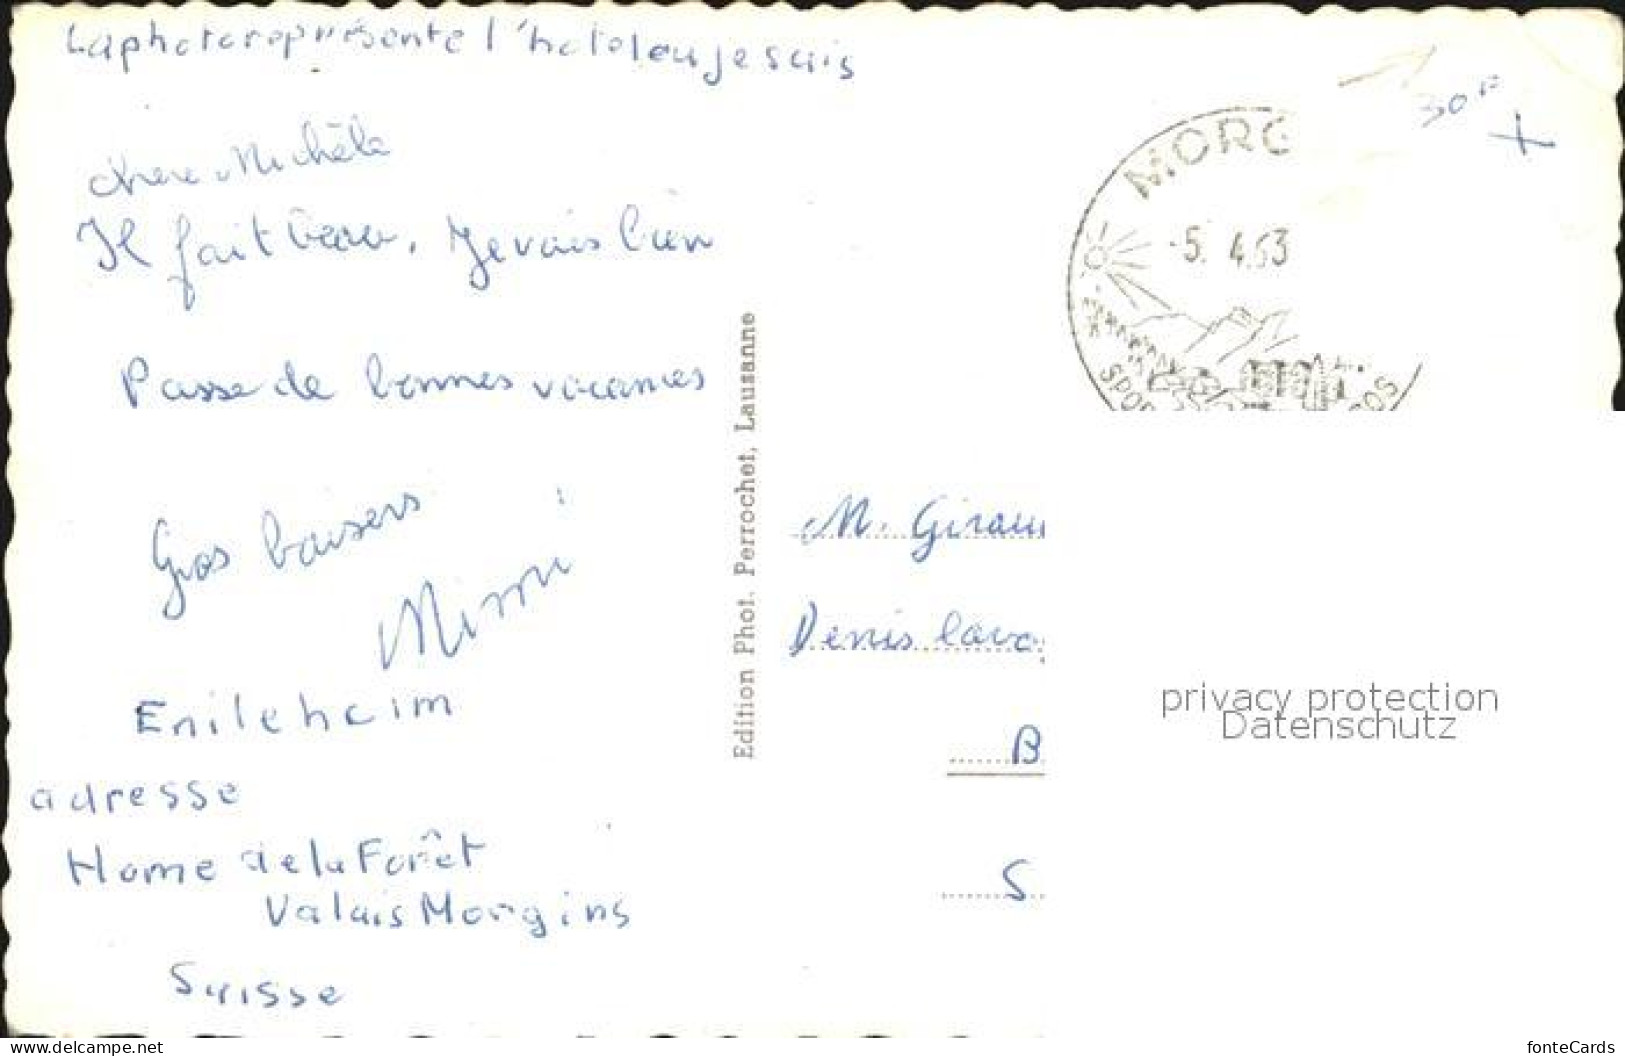 La photo représente l'hotel ou je suis
chere Michèle
Il fait beau. Je vais bien
Passe de bonnes vacances
Gros baisers
Mimi
Emileheim
adresse
Home de la Forêt
Valais Morgins
Suisse
Edition Phot. Perrochet, Lausanne
30F
MORG
-5. 4.63
SPOR
M. Girau
Denis lava
B
S
privacy protection
Datenschutz
www.delcampe.net
fonteCards